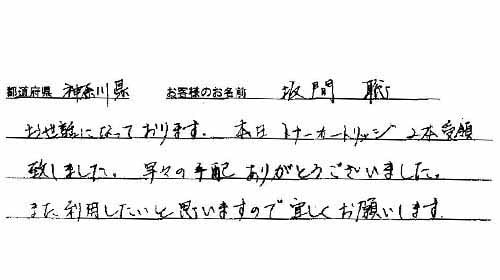 都道府県 神奈川県 お客様のお名前 坂間 聡
お世話になっております。本日トナーカートリッジ2本受領
致しました。早々の手配ありがとうございました。
また利用したいと思いますので宜しくお願いします